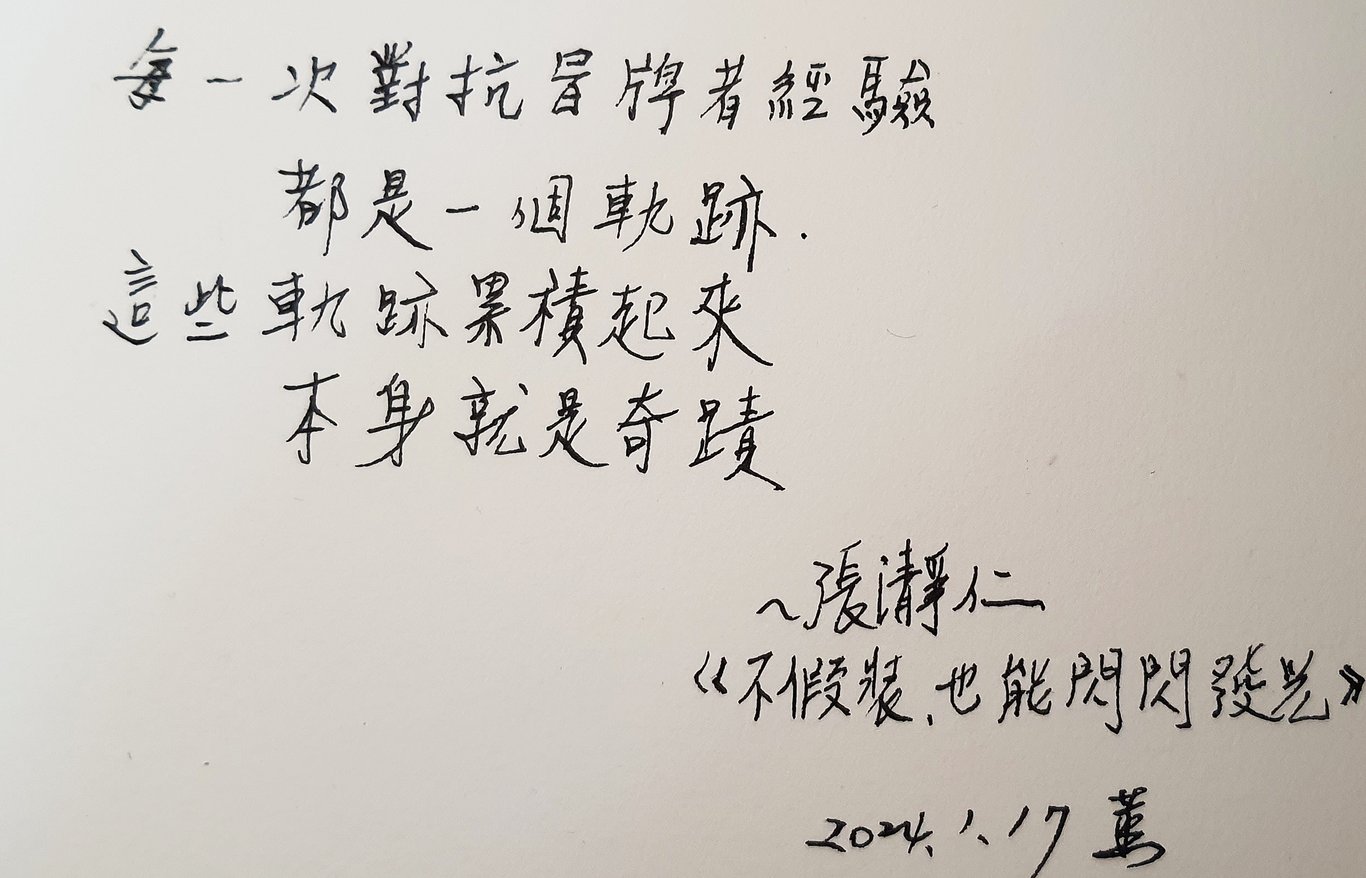 每一次對抗冒牌者經驗
都是一個軌跡.
這些軌跡累積起來
本身就是奇蹟
~張瀞仁
《不假裝,也能閃閃發光》
2024.1.17 薰